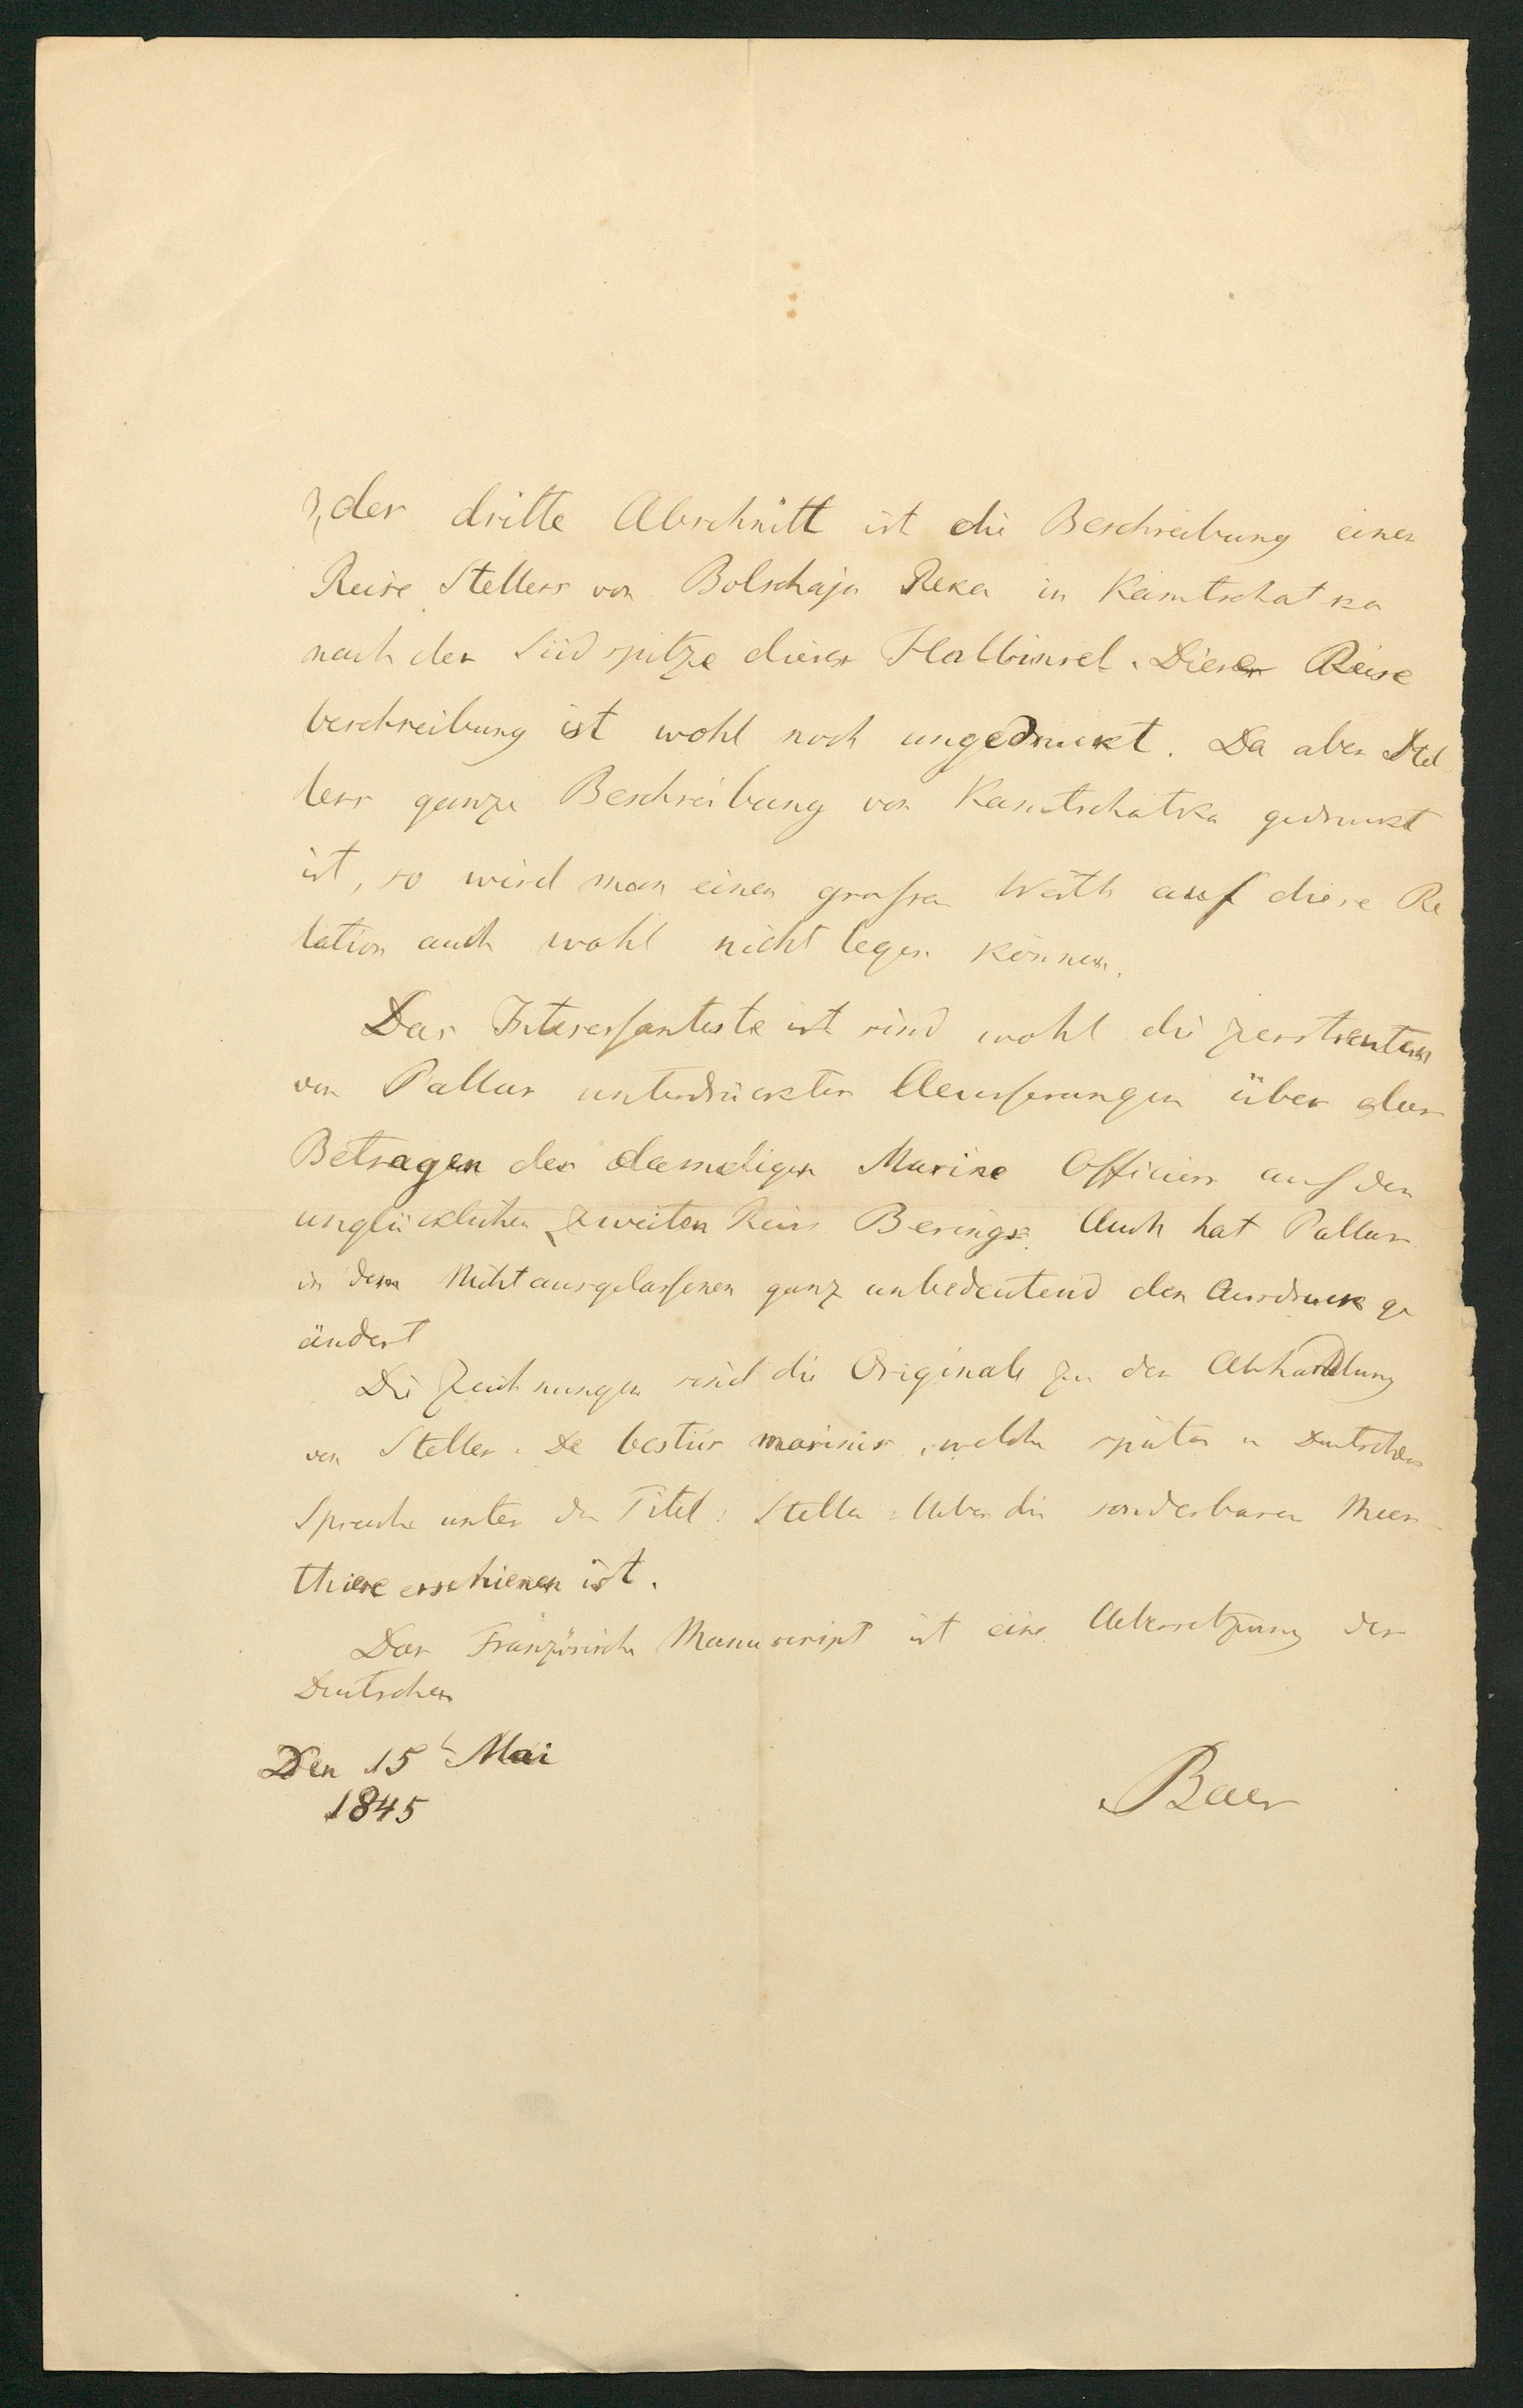 3, der dritte Abschnitt ist die Beschreibung einer
Reise Stellers von Bolschaja Reka in Kamtschatka
nach der Südspitze dieser Halbinsel. Diese Reise
beschreibung ist wohl noch ungedruckt. Da aber Stel
lers ganze Beschreibung von Kamtschatka gedruckt
ist, so wird man einen großen Werth auf diese Re
lation auch wohl nicht legen können.
Das Interessanteste ist sind wohl die zerstreuten
von Pallas unterdrückten Aeusserungen über das
Betragen der damaligen Marine Officiere auf der
unglücklichen zweiten Reise Berings. Auch hat Pallas
in dem Nichtausgelassenen ganz unbedeutend den Ausdruck ge
ändert
Die Zeichnungen sind die Originale zu der Abhandlung
von Steller: De bestiis marinis, welche später in Deutscher
Sprache unter dem Titel: Steller: Ueber die sonderbaren Meer
thiere erschienen ist.
Das Französische Manuscript ist eine Uebersetzung des
Deutschen
Den 15t Mai
1845
Baer